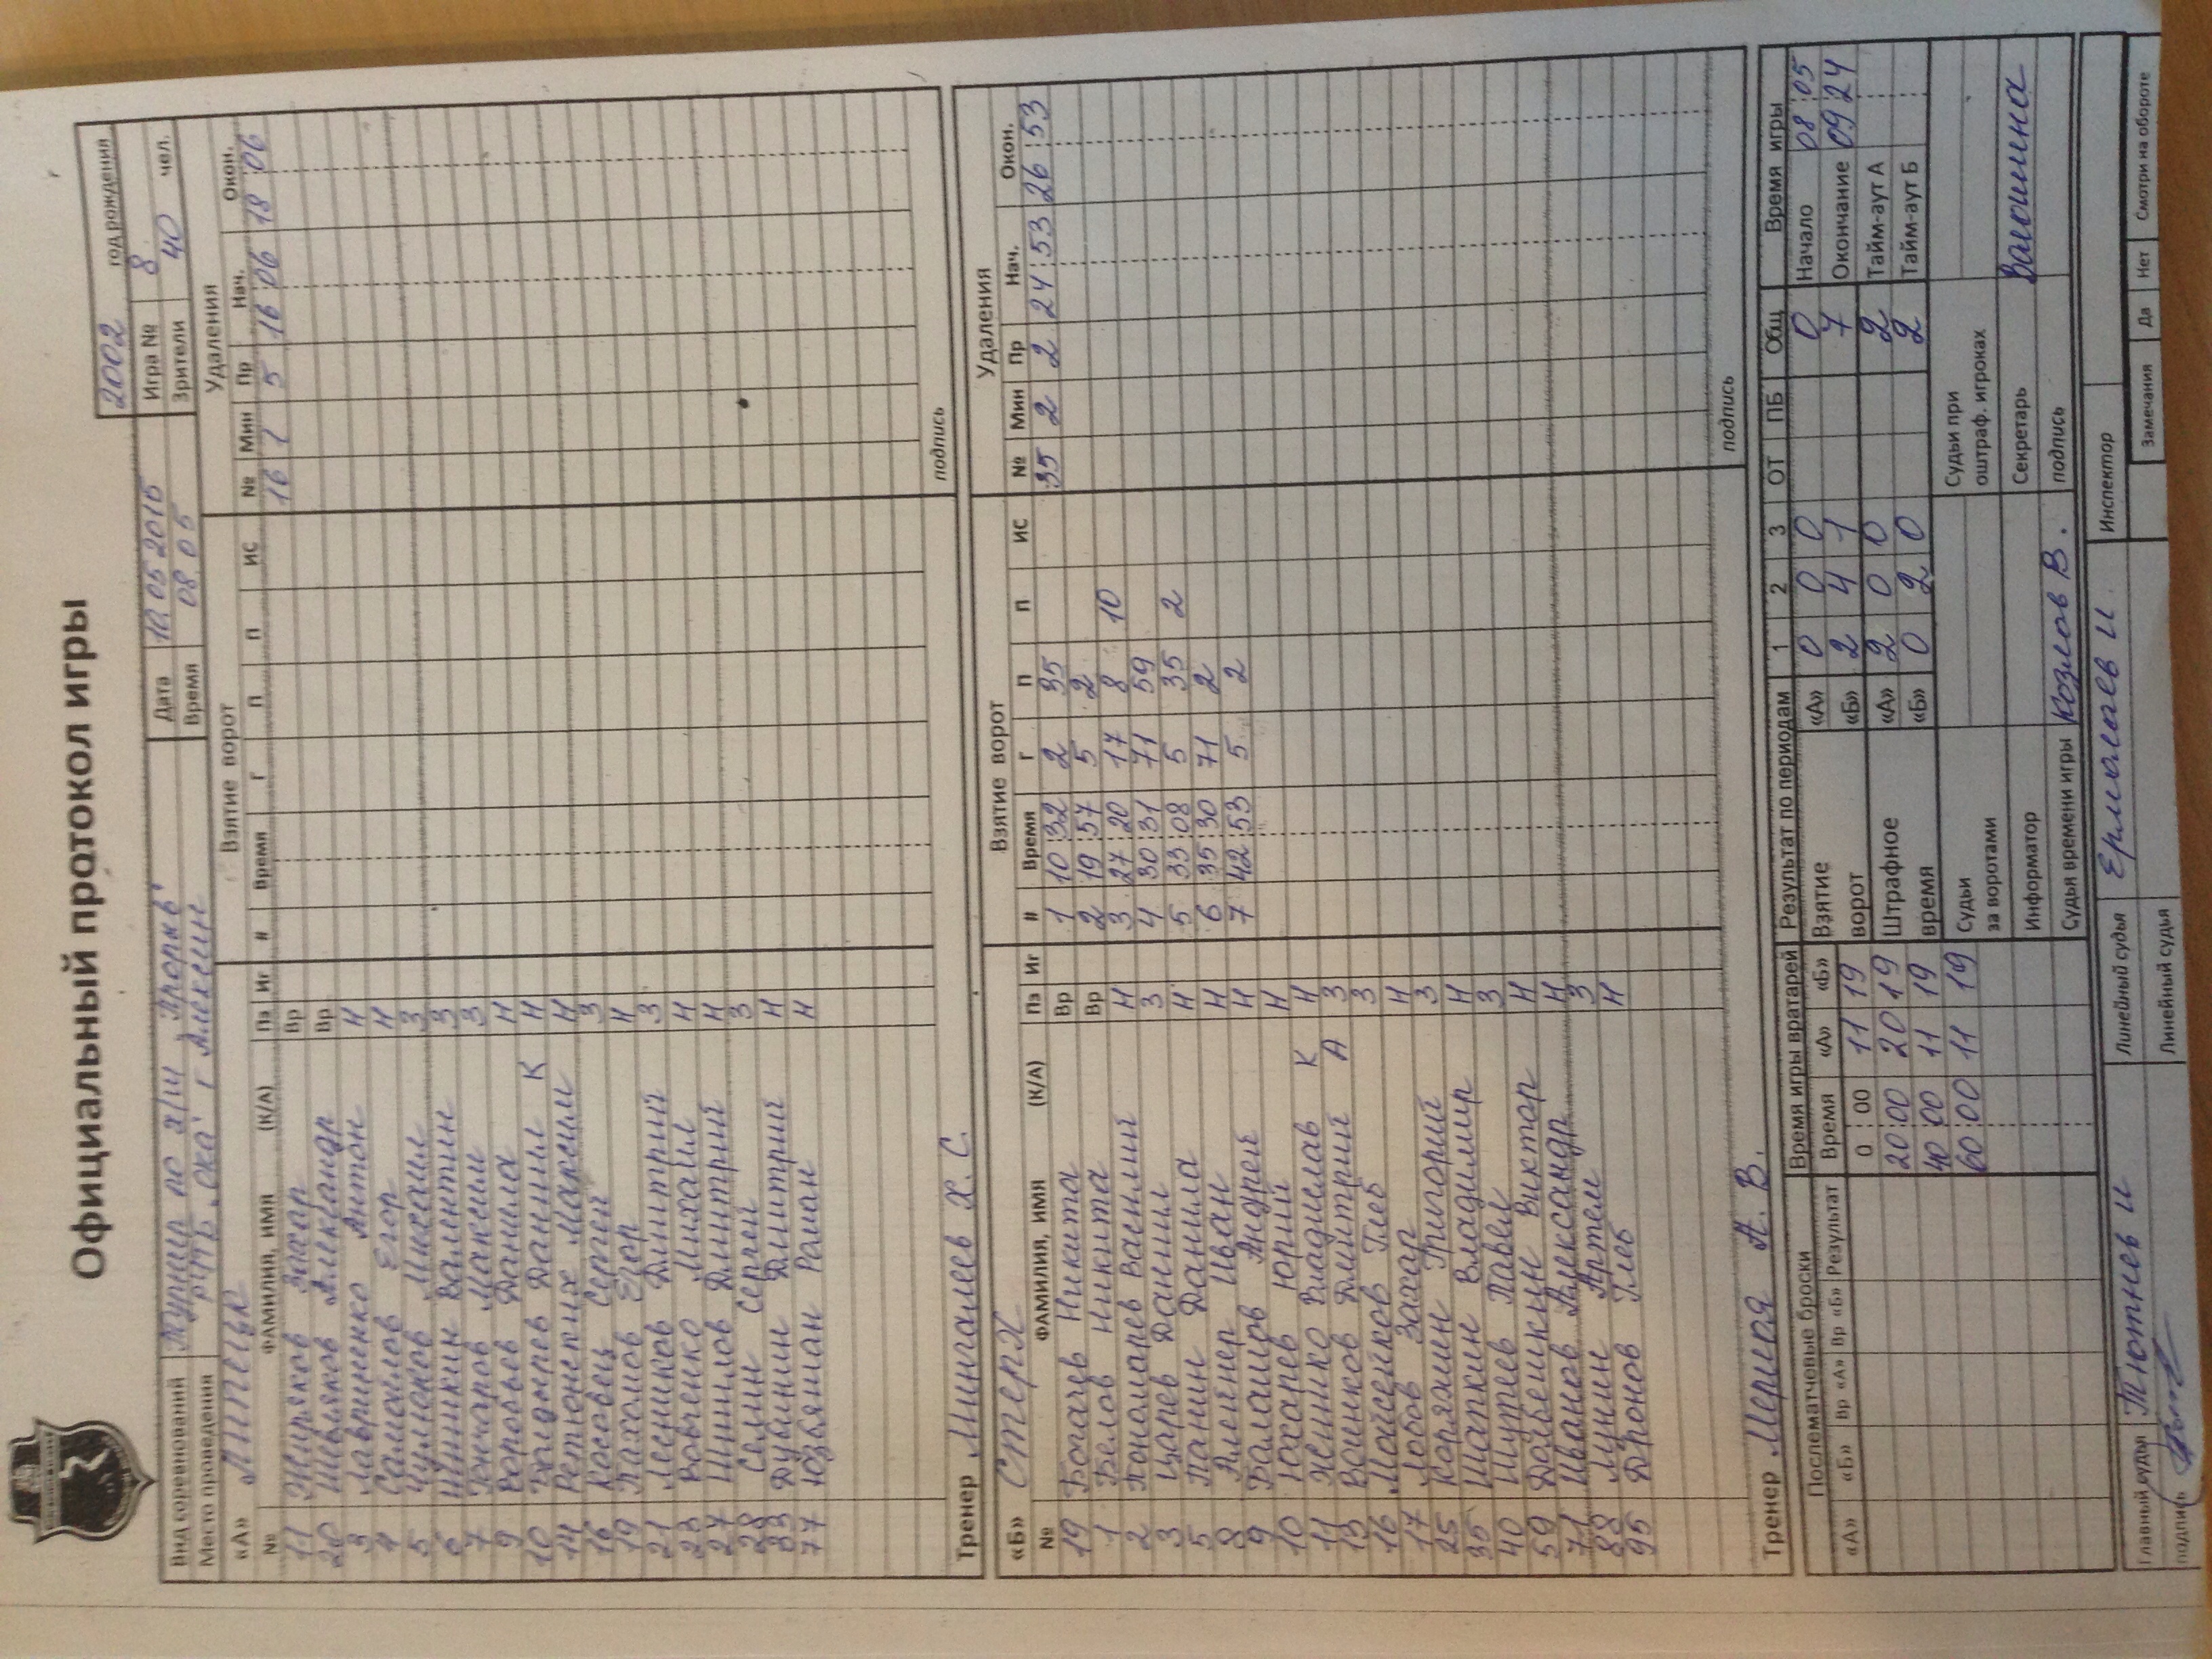 Официальный протокол игры
2002 год рождения
Вид соревнований Турнир по х/ш Дата 12 05 2015 Игра № 8
Место проведения г Алексин Время 08 05 Зрители 40 чел.
«А» Липецк Взятие ворот Удаления
№ ФАМИЛИЯ, ИМЯ (К/А) Пз Иг # Время Г П П ИС № Мин Пр Нач. Окон.
11 Захар Вр 16 2 5 16 06 18 06
20 Шевляков Александр Вр
3 Лавриненко Антон Н
4 Самойлов Егор Н
5 Михаил З
6 Валентин З
7 Гончаров Максим З
9 Воробьев Данила Н
10 Даниил К Н
14 Максим Н
16 Косовец Сергей З
19 Пахомов Егор Н
21 Лесников Дмитрий З
23 Вовченко Михаил Н
27 Шипилов Дмитрий Н
28 Селин Сергей З
33 Дубинин Дмитрий Н
77 Юзбямян Роман Н
подпись
Тренер Мингалеев Х. С.
«Б» Стерх Взятие ворот Удаления
№ ФАМИЛИЯ, ИМЯ (К/А) Пз Иг # Время Г П П ИС № Мин Пр Нач. Окон.
19 Богачев Никита Вр 1 10 32 2 35 35 2 2 24 53 26 53
1 Белов Никита Вр 2 19 57 5 2
2 Пономарев Василий Н 3 27 20 17 8 10
3 Царев Даниил З 4 30 31 71 59
5 Панин Данила Н 5 33 08 5 35 2
8 Иван Н 6 35 30 71 2
9 Балашов Андрей Н 7 42 53 5 2
10 Юхарев Юрий Н
11 Владислав К Н
13 Воинков Дмитрий А З
16 Мойсейков Глеб З
17 Лобов Захар Н
25 Коряжин Григорий З
35 Шапкин Владимир Н
40 Шутеев Павел З
59 Долбешкин Виктор Н
71 Иванов Александр Н
88 Лунин Артем З
95 Дронов Глеб Н
подпись
Тренер А. В.
Послематчевые броски Время игры вратарей Результат по периодам 1 2 3 ОТ ПБ Общ Время игры
«А» «Б» Вр «А» Вр «Б» Результат Время «А» «Б» Взятие ворот «А» 0 0 0 0 Начало 08 05
0 00 11 19 «Б» 2 4 1 7 Окончание 09 24
20 00 20 19 Штрафное время «А» 2 0 0 2 Тайм-аут А
40 00 11 19 «Б» 0 2 0 2 Тайм-аут Б
60 00 11 19 Судьи за воротами Судьи при оштраф. игроках
Информатор Секретарь
Судья времени игры Козлов В. подпись
Главный судья Тютнев И Линейный судья Ермолаев И Инспектор
подпись Линейный судья Замечания Да Нет Смотри на обороте